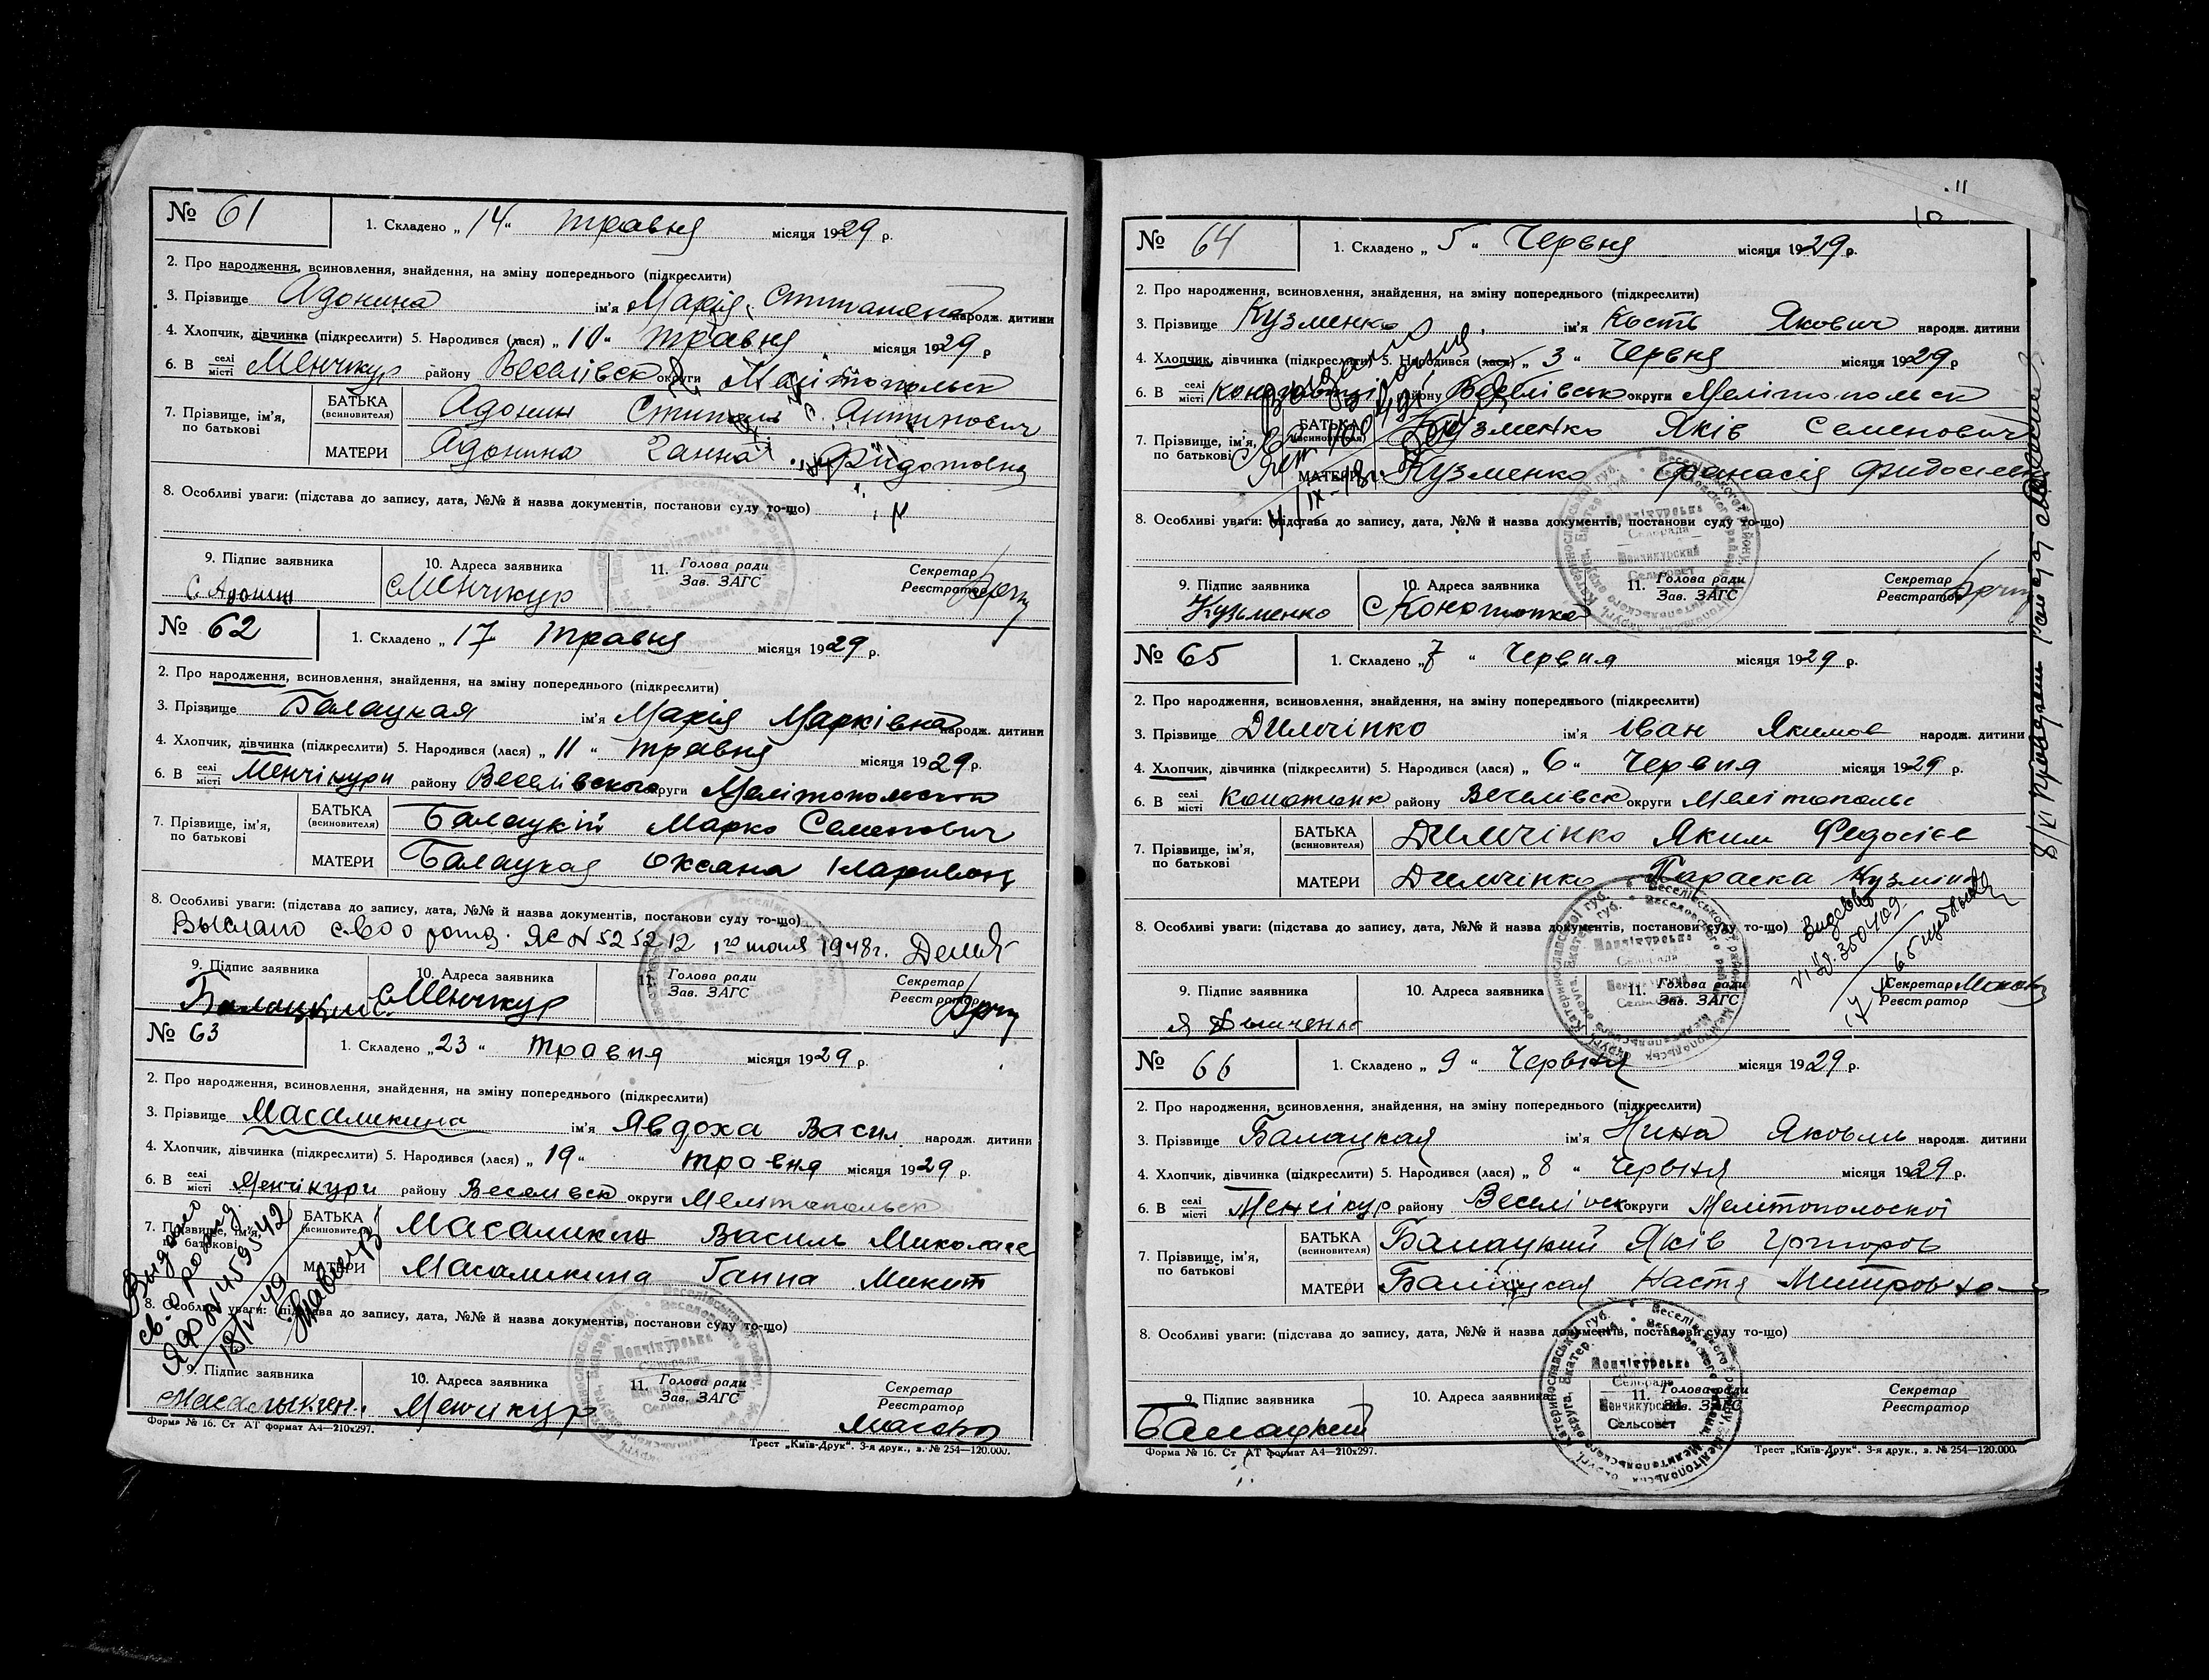 № 61
1. Складено „14“ травня місяця 1929 р.
2. Про народження, всиновлення, знайдення, на зміну попереднього (підкреслити)
3. Прізвище Адонина ім'я Марія народж. дитини
4. Хлопчик, дівчинка (підкреслити) 5. Народився (лася) „10“ травня місяця 1929 р
6. В селі місті Менчикур району Веселівск округи Мелітопольск
7. Прізвище, ім'я, по батькові
БАТЬКА (всиновителя) Адонин Антипович
МАТЕРИ Адонина Ганна Фидотовна
8. Особливі уваги: (підстава до запису, дата, №№ й назва документів, постанови суду то-що)
9. Підпис заявника 10. Адреса заявника 11. Голова ради Зав. ЗАГС Секретар Реєстратор
С. Адонин с Менчикур
№ 62
1. Складено „17 травня місяця 1929 р.
2. Про народження, всиновлення, знайдення, на зміну попереднього (підкреслити)
3. Прізвище Балацкая ім'я Марія Марківна народж. дитини
4. Хлопчик, дівчинка (підкреслити) 5. Народився (лася) „11“ травня місяця 1929 р.
6. В селі місті Менчікури району Веселівского округи
7. Прізвище, ім'я, по батькові
БАТЬКА (всиновителя) Балацкій Марко Семенович
МАТЕРИ Балацкая Оксана
8. Особливі уваги: (підстава до запису, дата, №№ й назва документів, постанови суду то-що)
Выслано св о рожд. ЯС № 525212 1948г.
9. Підпис заявника 10. Адреса заявника 11. Голова ради Зав. ЗАГС Секретар Реєстратор
Балацкий с. Менчикур
№ 63
1. Складено „23“ травня місяця 1929 р.
2. Про народження, всиновлення, знайдення, на зміну попереднього (підкреслити)
3. Прізвище Масаликина ім'я Явдоха Васил народж. дитини
4. Хлопчик, дівчинка (підкреслити) 5. Народився (лася) „19“ травня місяця 1929 р.
6. В селі місті Менчікури району Веселівск округи Мелітопольск
7. Прізвище, ім'я, по батькові
БАТЬКА (всиновителя) Масаликин Василь Миколаев
МАТЕРИ Масаликина Ганна Микит
Выдано св. о рожд. ЯФ № 459542
8. Особливі уваги: (підстава до запису, дата, №№ й назва документів, постанови суду то-що)
9. Підпис заявника 10. Адреса заявника 11. Голова ради Зав. ЗАГС Секретар Реєстратор
Менчікур
Форма № 16. Ст АТ формат А4—210х297. Трест „Київ-Друк“. 3-я друк., з. № 254—120.000.
11
10
№ 64
1. Складено „5“ Червня місяця 1929 р.
2. Про народження, всиновлення, знайдення, на зміну попереднього (підкреслити)
3. Прізвище Кузменко ім'я Кость Якович народж. дитини
4. Хлопчик, дівчинка (підкреслити) 5. Народився (лася) „3“ Червня місяця 1929 р
6. В селі місті району Веселівськ округи Мелітопольск
7. Прізвище, ім'я, по батькові
БАТЬКА (всиновителя) Кузменко Яків Семенович
МАТЕРИ Кузменко
8. Особливі уваги: (підстава до запису, дата, №№ й назва документів, постанови суду то-що)
9. Підпис заявника 10. Адреса заявника 11. Голова ради Зав. ЗАГС Секретар Реєстратор
Кузьменко с Конотопка
№ 65
1. Складено „7“ Червня місяця 1929 р.
2. Про народження, всиновлення, знайдення, на зміну попереднього (підкреслити)
3. Прізвище Димчінко ім'я Іван Якимов народж. дитини
4. Хлопчик, дівчинка (підкреслити) 5. Народився (лася) „6“ Червня місяця 1929 р.
6. В селі місті району Веселівск округи Мелітопольс
7. Прізвище, ім'я, по батькові
БАТЬКА (всиновителя) Димчінко Яким Федосієв
МАТЕРИ Димчінко Параска Кузмін
8. Особливі уваги: (підстава до запису, дата, №№ й назва документів, постанови суду то-що)
9. Підпис заявника 10. Адреса заявника 11. Голова ради Зав. ЗАГС Секретар Реєстратор
№ 66
1. Складено „9“ Червня місяця 1929 р.
2. Про народження, всиновлення, знайдення, на зміну попереднього (підкреслити)
3. Прізвище Балацкая ім'я Нина Яковль народж. дитини
4. Хлопчик, дівчинка (підкреслити) 5. Народився (лася) „8“ Червня місяця 1929 р.
6. В селі місті Менчікур району округи Мелітопольскої
7. Прізвище, ім'я, по батькові
БАТЬКА (всиновителя) Балацкий Яків Григоров
МАТЕРИ Балацкая Настя
8. Особливі уваги: (підстава до запису, дата, №№ й назва документів, постанови суду то-що)
9. Підпис заявника 10. Адреса заявника 11. Голова ради Зав. ЗАГС Секретар Реєстратор
Балацкий
Форма № 16. Ст АТ формат А4—210х297. Трест „Київ-Друк“. 3-я друк., з. № 254—120.000.